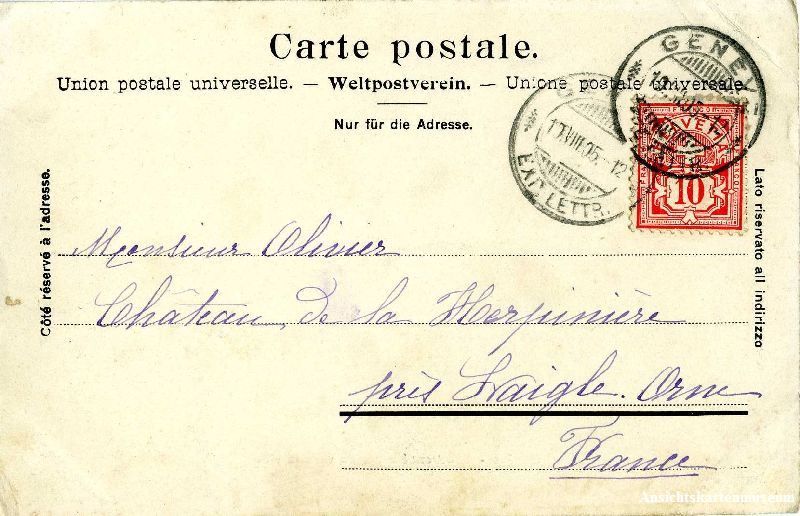 Carte postale.
Union postale universelle. — Weltpostverein. — Unione postale universale.
Nur für die Adresse.
GENÈV
EXP. LETTR.
HELVETIA
FRANCO
10
Côté réservé à l'adresse.
Lato riservato all indirizzo
Monsieur Olivier
Château de la Herpinière
près Laigle. Orne
France
Ansichtskartenmuseum